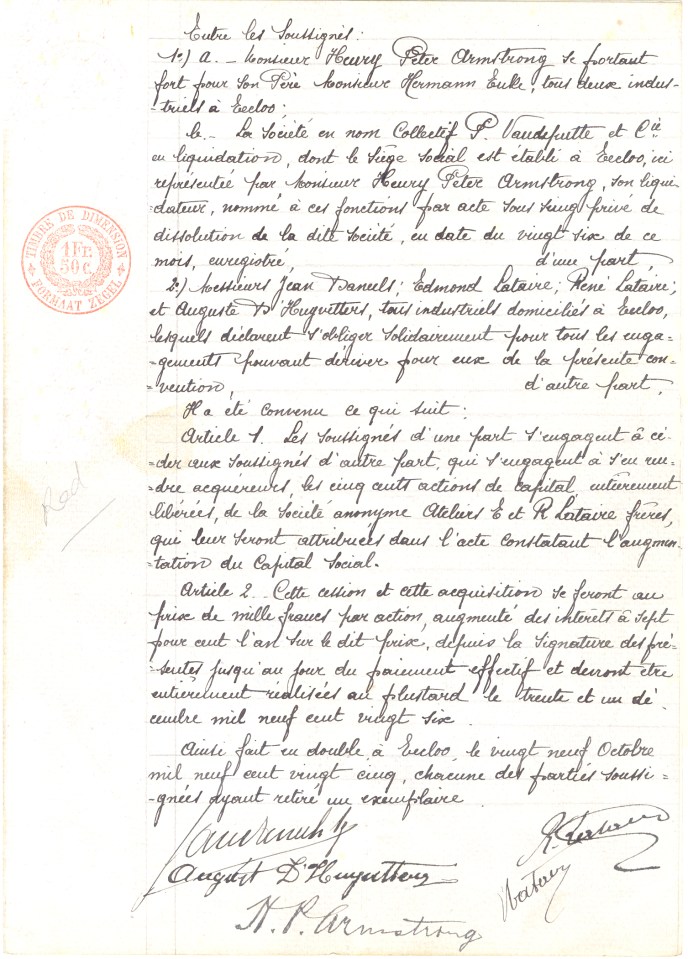 Entre les Soussignés:
1º) a. – Monsieur Henry Peter Armstrong se portant
fort pour son Père Monsieur Hermann Enke, tous deux indus-
triels à Eecloo;
b. – La Société en nom Collectif P. Vandeputte et Cie
en liquidation, dont le Siège Social est établi à Eecloo, ici
représentée par Monsieur Henry Peter Armstrong, son liqui-
-dateur, nommé à ces fonctions par acte sous seing privé de
dissolution de la dite Société, en date du vingt six de ce
mois, enregistré d'une part,
2º) Messieurs Jean Daneels; Edmond Lataire; René Lataire;
et Auguste D'Huyvetters, tous industriels domiciliés à Eecloo,
lesquels déclarent s'obliger solidairement pour tous les enga-
-gements pouvant dériver pour eux de la présente con-
-vention, d'autre part,
Il a été convenu ce qui suit:
Article 1. Les soussignés d'une part s'engagent à cé-
-der aux soussignés d'autre part, qui s'engagent à s'en ren-
-dre acquéreurs, les cinq cents actions de capital, entièrement
libérées, de la Société anonyme Ateliers E et R Lataire frères,
qui leur seront attribuées dans l'acte constatant l'augmen-
-tation du Capital Social.
Article 2. Cette cession et cette acquisition se feront au
prix de mille francs par action, augmenté des intérêts à sept
pour cent l'an sur le dit prix, depuis la signature des pré-
-sentes jusqu'au jour du paiement effectif et devront être
entièrement réalisées au plustard le trente et un dé
cembre mil neuf cent vingt six.
Ainsi fait en double à Eecloo, le vingt neuf Octobre
mil neuf cent vingt cinq, chacune des parties soussi-
-gnées ayant retiré un exemplaire.
August D'Huyvetters
H. P. Armstrong
TIMBRE DE DIMENSION
1 Fr.
50 c.
FORMAAT ZEGEL
Red